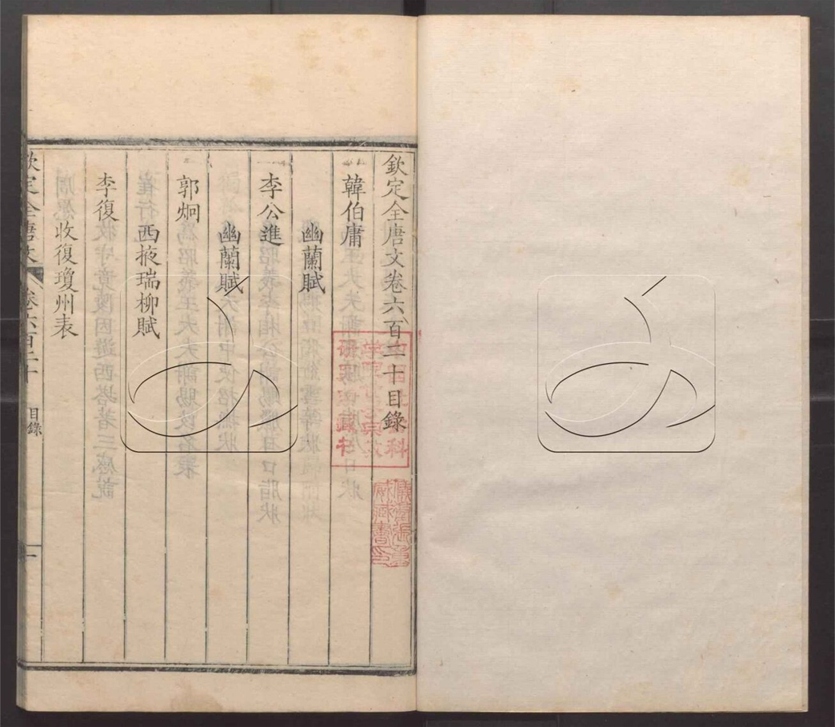 欽定全唐文卷六百二十目錄
韓伯庸
幽蘭賦
李公進
幽蘭賦
郭炯
西掖瑞柳賦
李復
收復瓊州表
欽定全唐文 卷六百二十 目錄 一